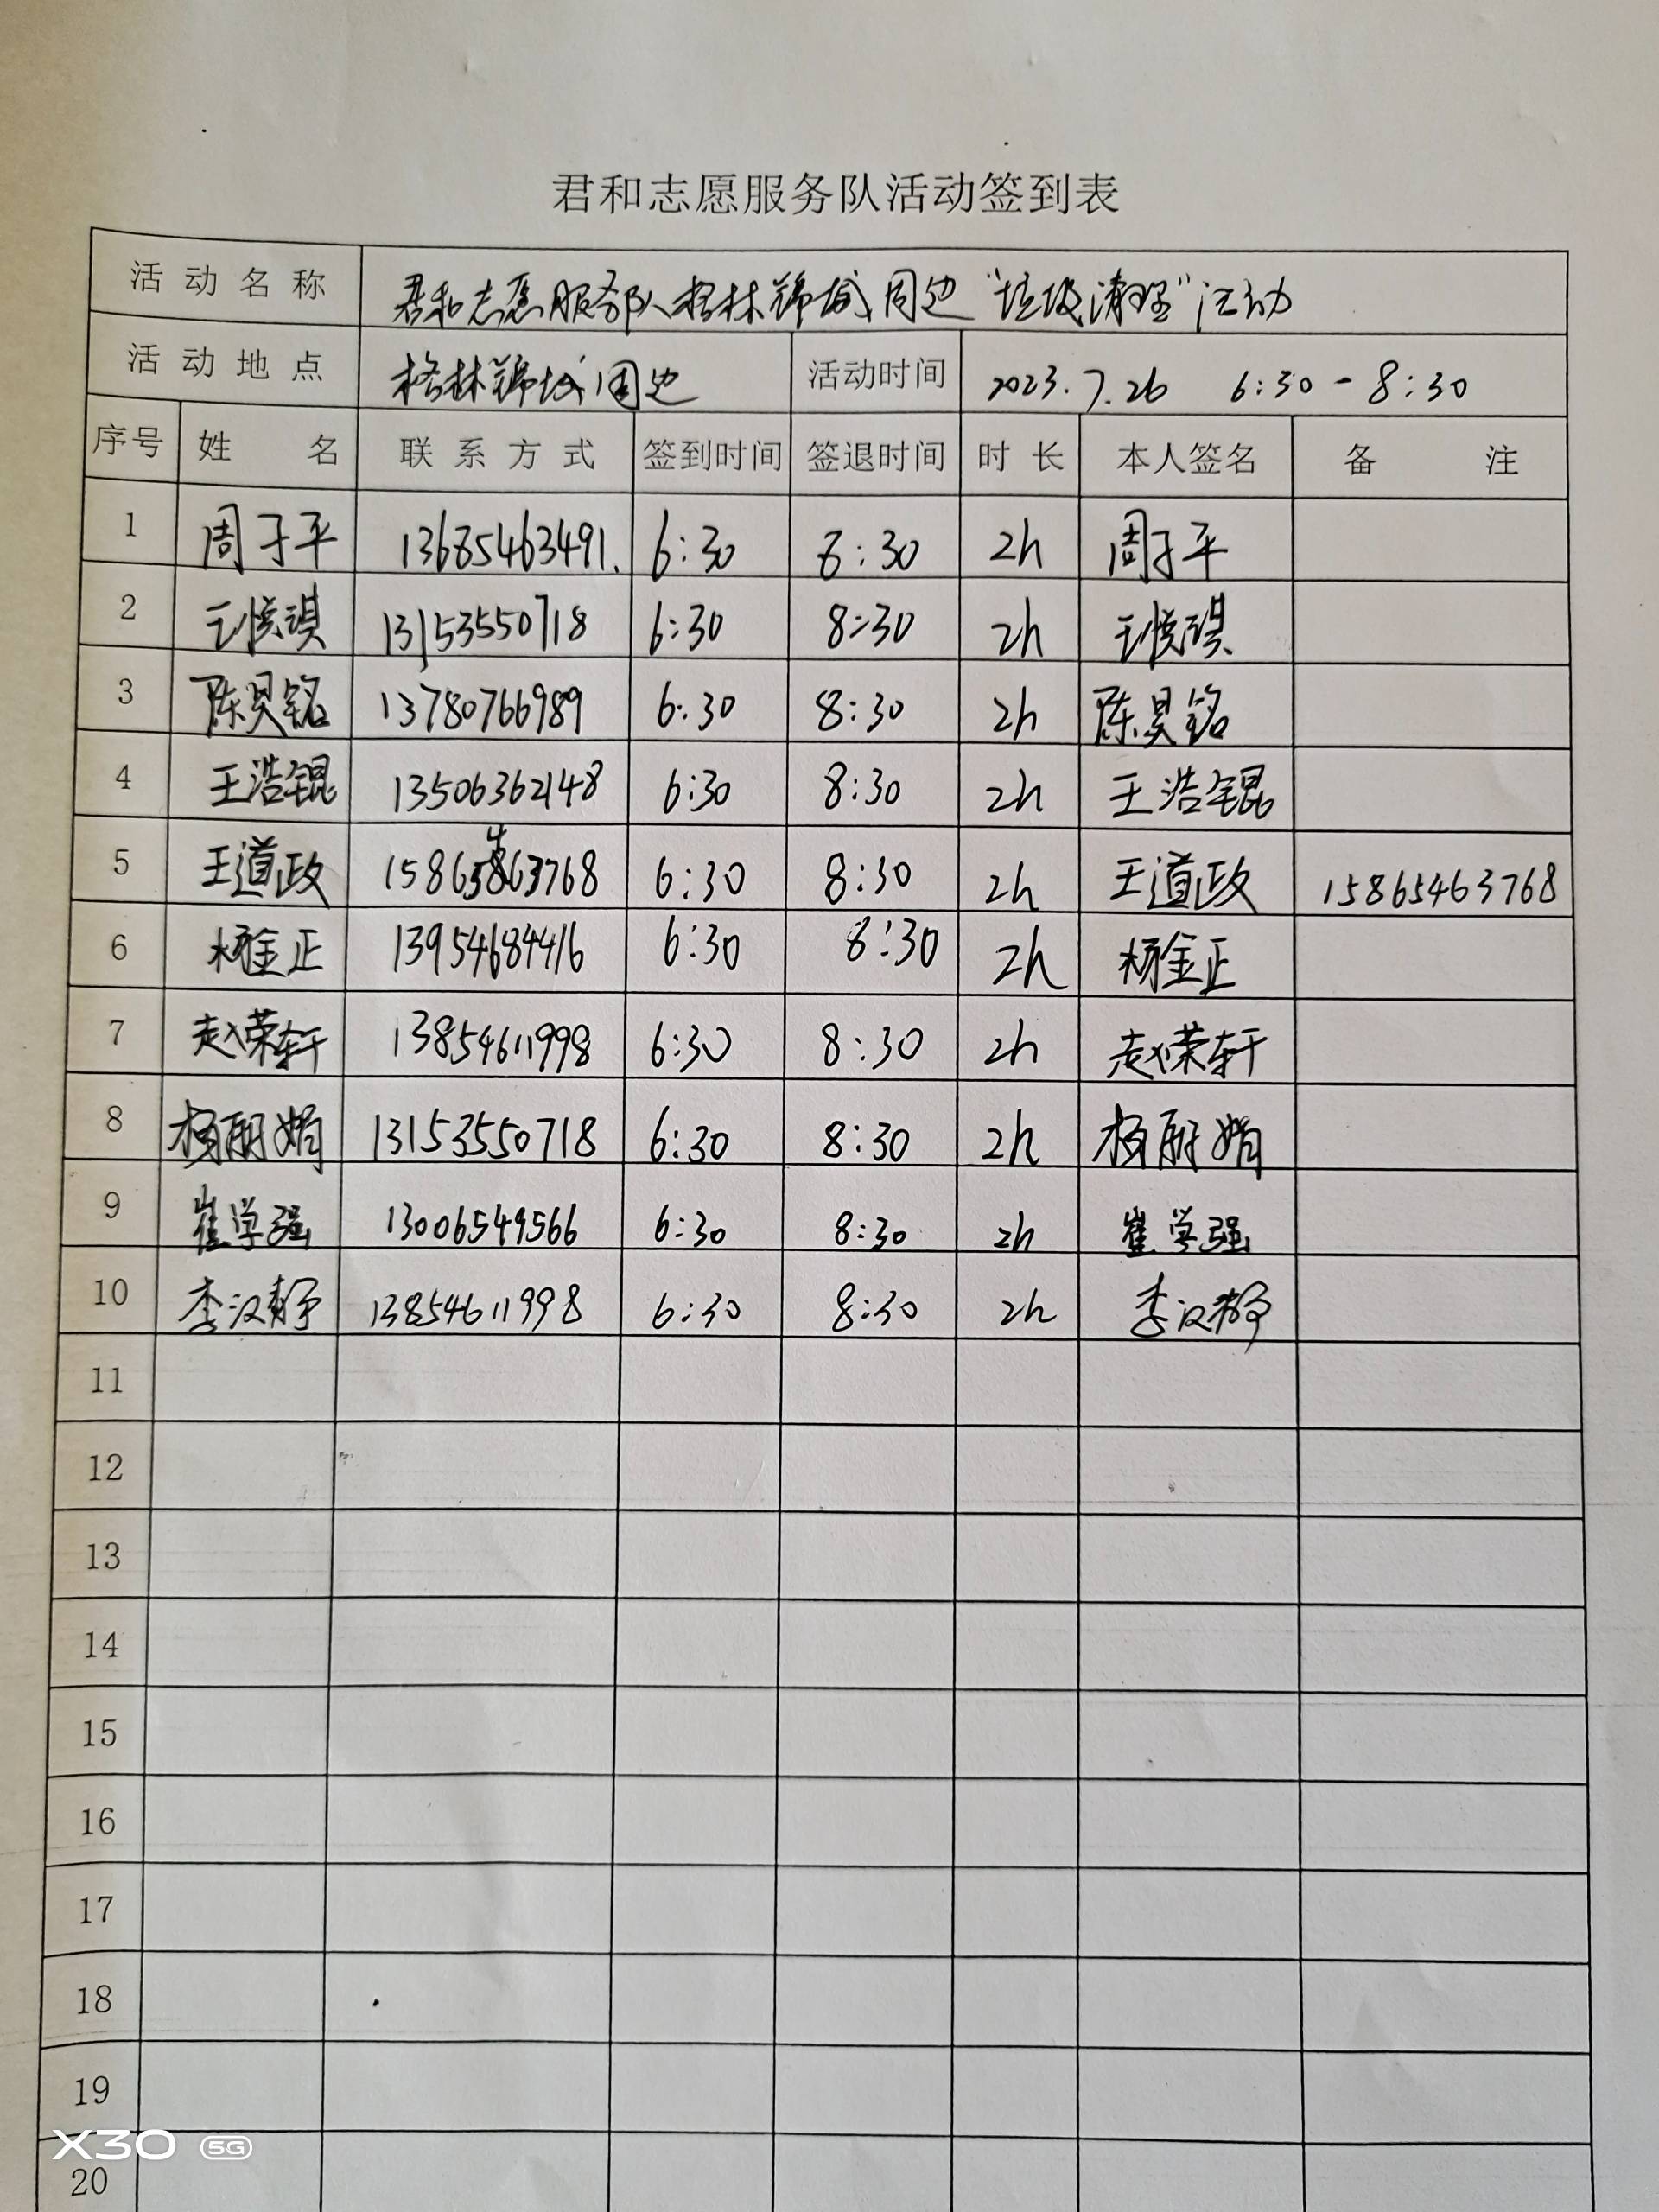 君和志愿服务队活动签到表
活动名称 君和志愿服务队格林锦城周边“垃圾清理”活动
活动地点 格林锦城周边 活动时间 2023.7.26 6:30-8:30
序号 姓名 联系方式 签到时间 签退时间 时长 本人签名 备注
1 周于平 13685463491. 6:30 8:30 2h 周于平
2 王悦琪 13153550718 6:30 8:30 2h 王悦琪
3 陈昊铭 13780766989 6:30 8:30 2h 陈昊铭
4 王浩锟 13506362148 6:30 8:30 2h 王浩锟
5 王道政 15865463768 6:30 8:30 2h 王道政 15865463768
6 杨金正 13954684416 6:30 8:30 2h 杨金正
7 赵荣轩 13854611998 6:30 8:30 2h 赵荣轩
8 杨丽娟 13153550718 6:30 8:30 2h 杨丽娟
9 崔学强 13006549566 6:30 8:30 2h 崔学强
10 李汉静 13854611998 6:30 8:30 2h 李汉静
11
12
13
14
15
16
17
18
19
20
X30 5G